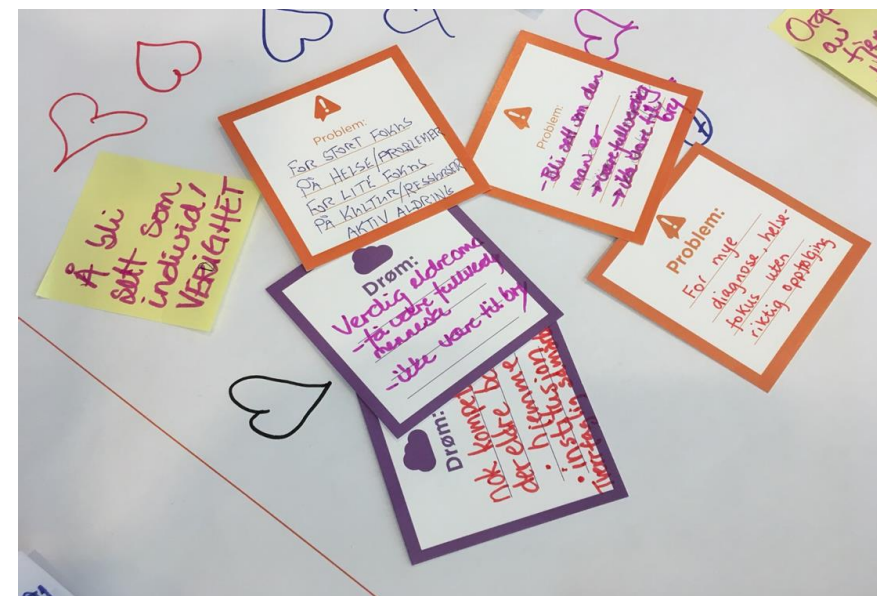 Å bli
sett som
individ/
VERDIGHET
Problem:
FOR STORT FOKUS
PÅ HELSE/PROBLEMER
FOR LITE FOKUS
PÅ KULTUR/RESSURSER
AKTIV ALDRING
Problem:
- Bli sett som den
man er
ikke være til bry
Problem:
For mye
diagnose, helse-
fokus uten
riktig oppfølging
Drøm:
Verdig eldreomo
- få være fullverdig
menneske
- ikke være til bry
Drøm:
Nok kompe
der eldre bo
• hjemme
• institusjon